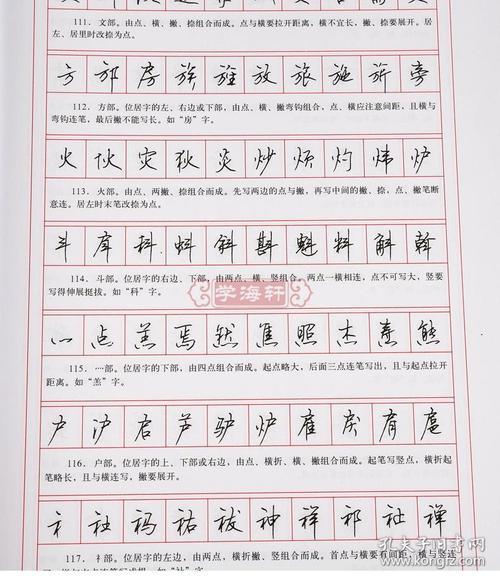 111. 文部。由点、横、撇、捺组合而成。点与横要拉开距离，横不宜长，撇、捺要展开。居
左、居里时改捺为点。
方 部 房 族 旌 放 旅 施 旂 旁
112. 方部。位居字的左、右边或下部，由点、横、横、撇弯钩组合，点、横应注意间距，且横与
弯钩连笔，最后撇不能写长。如“房”字。
火 伙 灾 狄 炎 炒 烦 灼 炜 炉
113. 火部。由点、两撇、捺组合而成。先写两边的点与撇，再写中间的撇、捺，点、撇笔断
意连。居左时末笔改捺为点。
斗 库 科 蚪 斜 斟 魁 料 斛 斡
114. 斗部。位居字的右边、下部，由两点、横、竖组合。两点一横相连，点不可写大，竖要
写得伸展挺拔。如“科”字。
学海轩
灬 点 羔 焉 然 焦 照 杰 熹 熊
115. 灬部。位居字的下部，由四点组合而成。起点略大，后面三点连笔写出，且与起点拉开
距离。如“羔”字。
户 沪 启 芦 驴 炉 雇 戾 肩 扈
116. 户部。位居字的上、下部或右边，由点、横折、横、撇组合而成。起笔写竖点，横折起
笔略长，且与横连写，撇要展开。
礻 社 祃 祐 祓 神 祥 祁 祉 禅
117. 礻部。位居字的左边，由两点、横折撇、竖组合而成。首点与横要有间距，横与竖连
孔夫子旧书网
kongfz.com